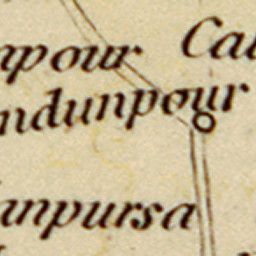 npour Cal
ndunpour
unpursa